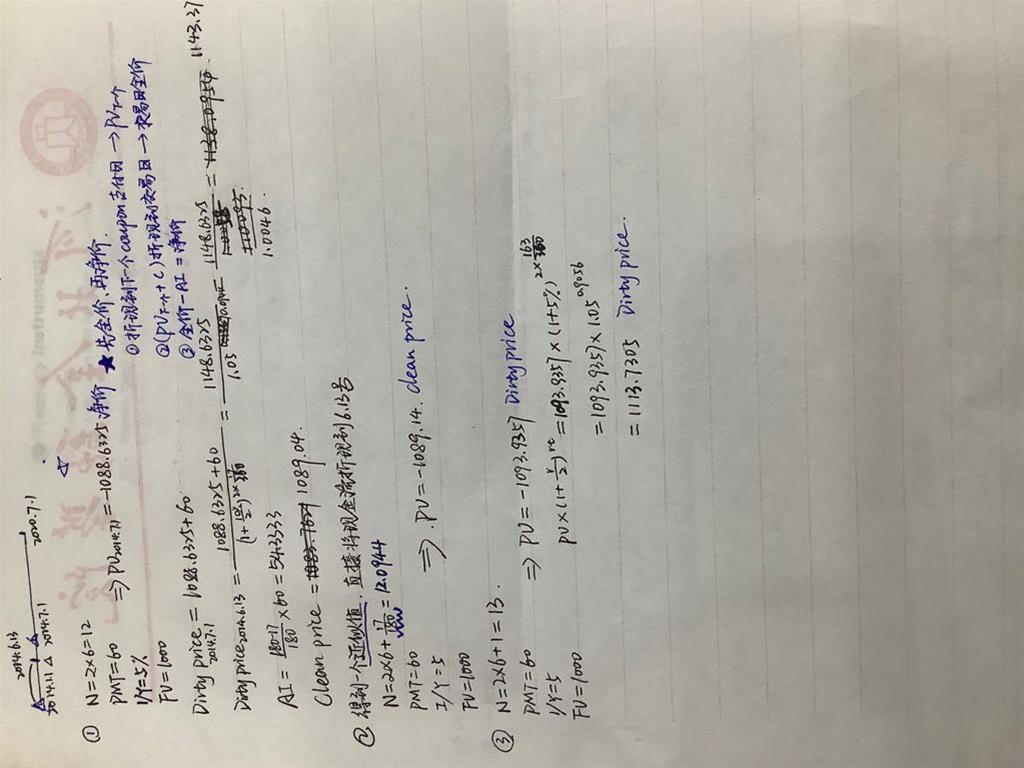 2014.6.13
2014.1.1 2014.7.1 2020.7.1
① N=2×6=12
PMT=60 ⇒ PV2014.7.1=-1088.6325 净价 ★ 先全价 再净价.
I/Y=5% ①折现到下一个coupon支付日→PV下一个
FV=1000 ②(PV下一个+C)折现到交易日→交易日全价
③全价-AI=净价
Dirty price 2014.7.1 = 1088.6325+60
Dirty price 2014.6.13 = 1088.6325+60 = 1148.6325 = 1148.6325 = 1143.37
1.05 1.0046.
AI = 180-17/180 ×60=54.3333
Clean price = 1089.04.
② 得到一个近似值. 直接将现金流折现到6.13号
N=2×6+17/180=12.0944
PMT=60 ⇒ PV=-1089.14. clean price.
I/Y=5
FV=1000
③ N=2×6+1=13.
PMT=60 ⇒ PV=-1093.9357 Dirty price
I/Y=5 PV×(1+r/2)^n×2=1093.9357×(1+5%)^2×163/360
FV=1000 =1093.9357×1.05
=1113.7305 Dirty price.